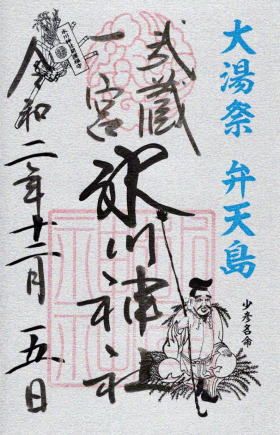 大湯祭 弁天島
武蔵
一宮
氷川神社
令和二年十二月五日
少彦名命